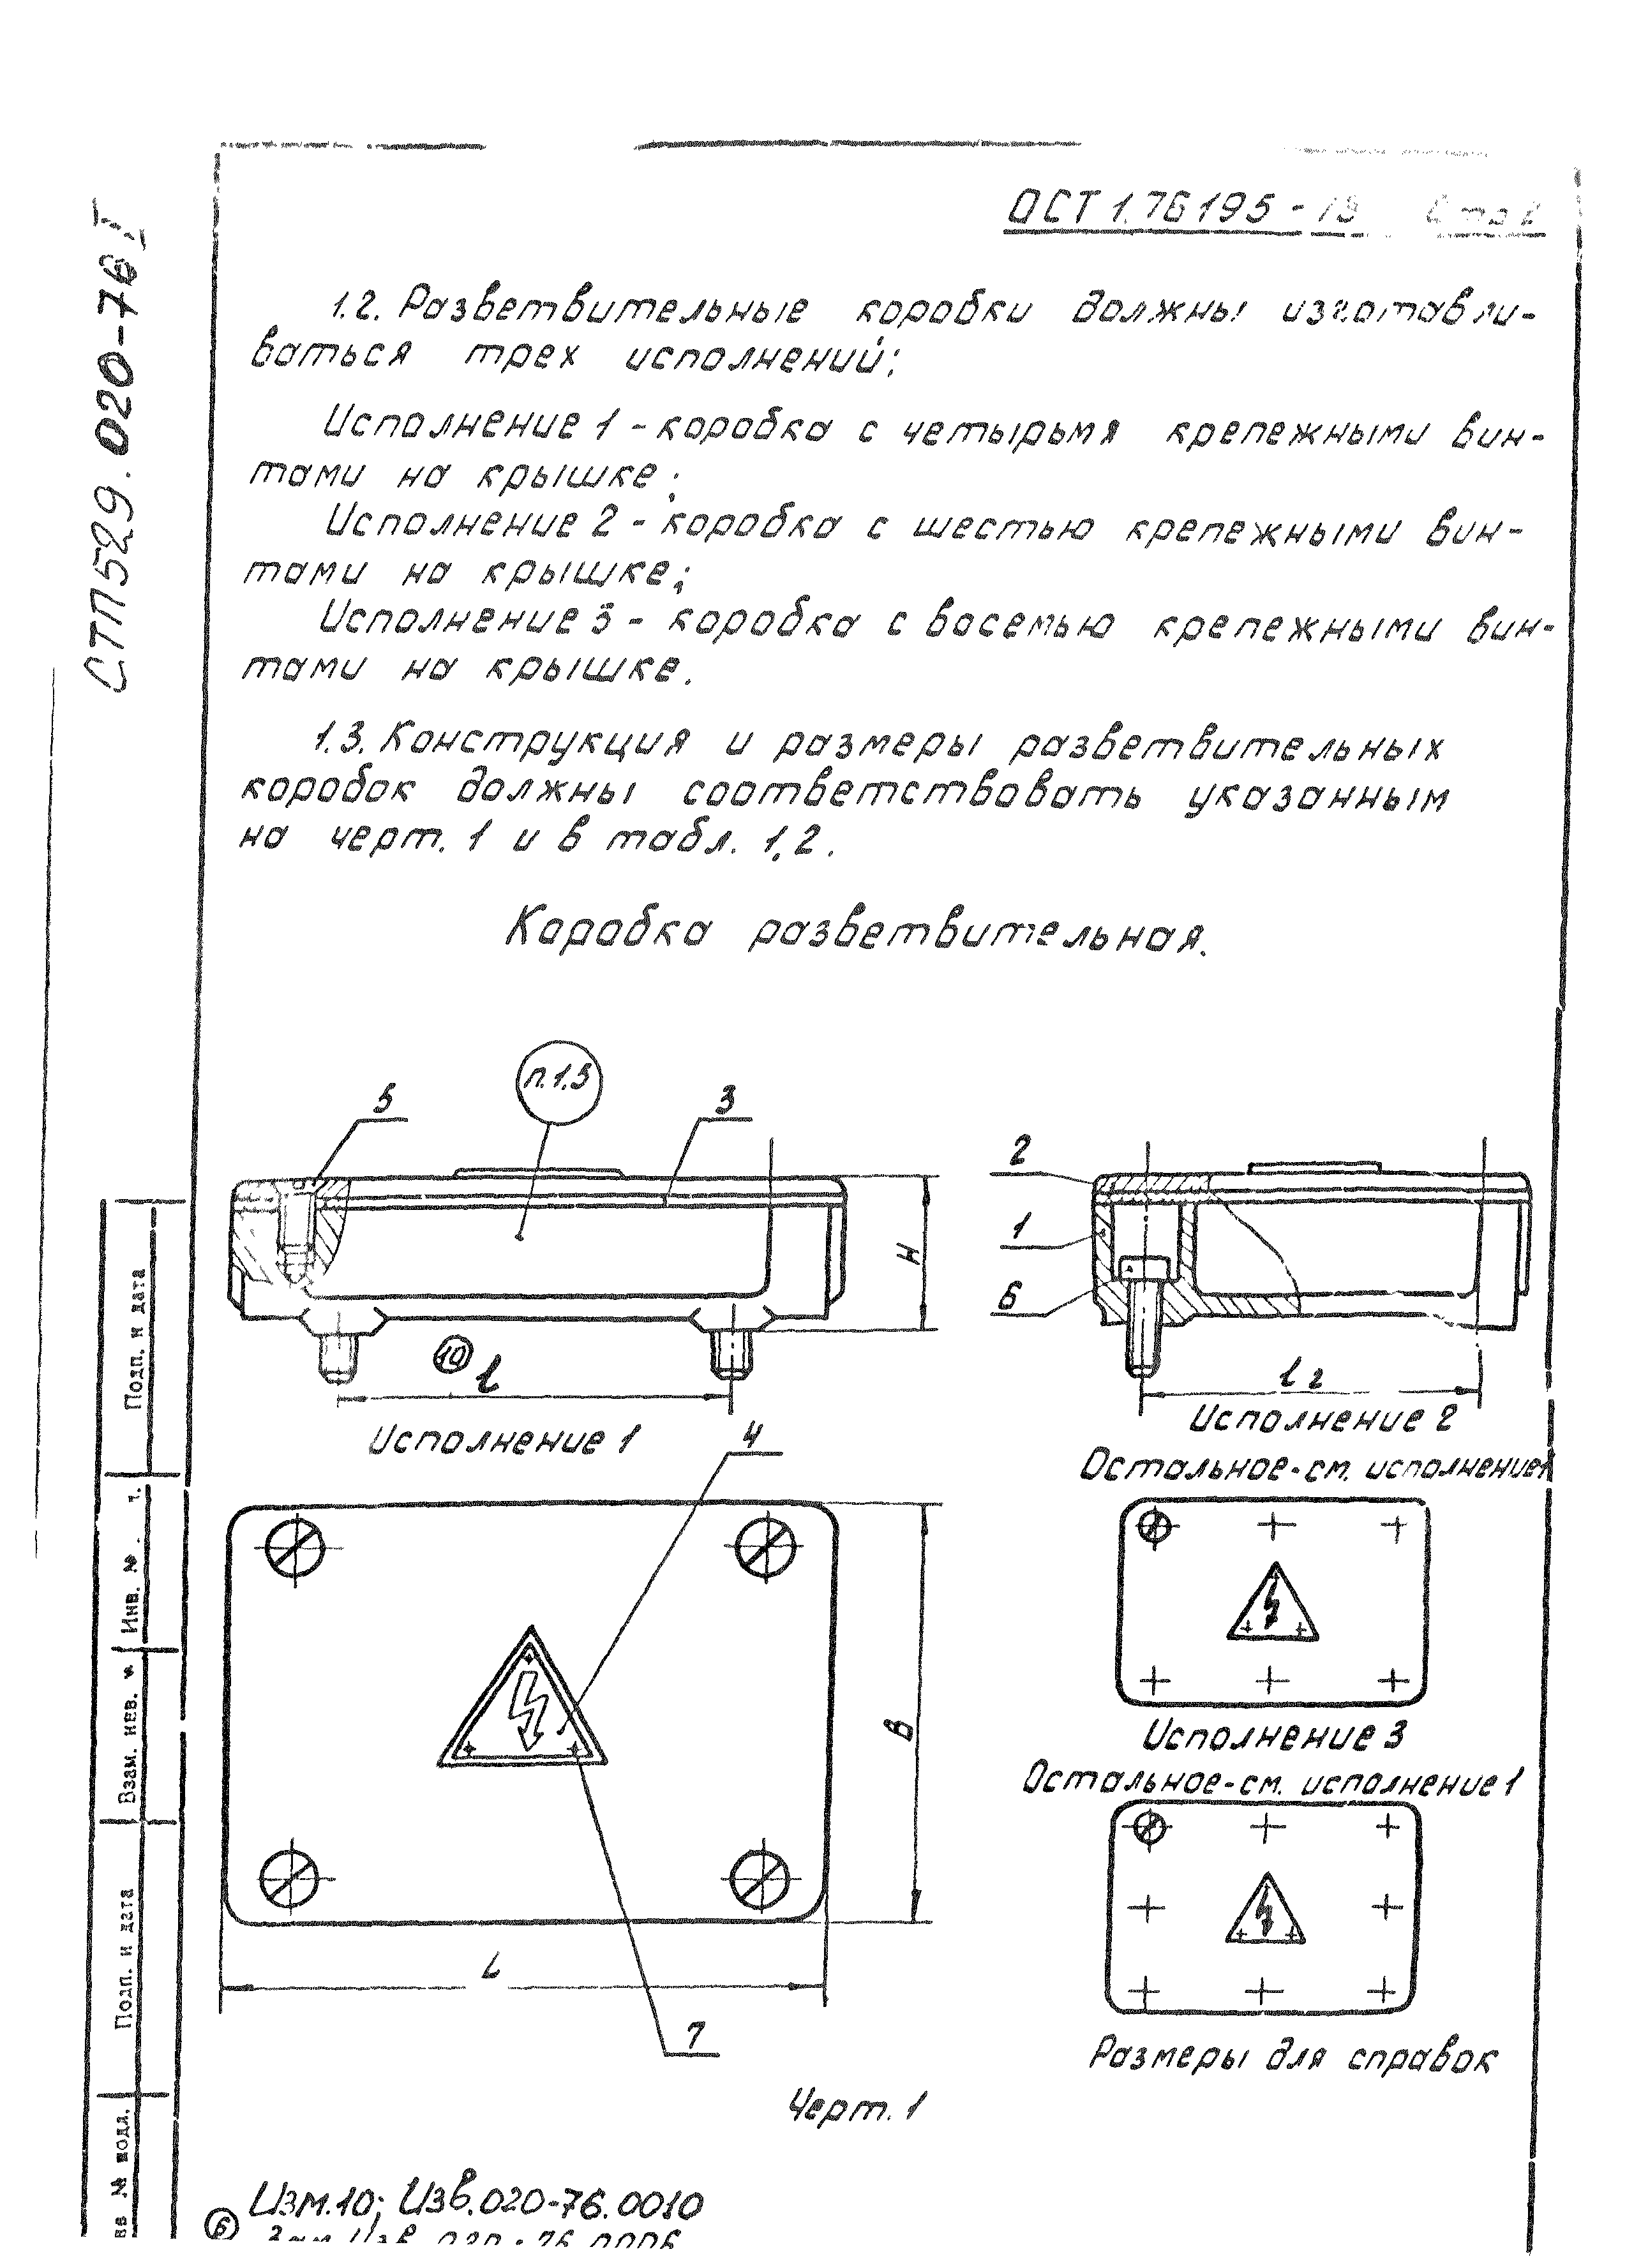 ОСТ 1.76195-78
СТП 529.020-76
1.2. Разветвительные коробки должны изготавли-
ваться трех исполнений:
Исполнение 1 - коробка с четырьмя крепежными вин-
тами на крышке;
Исполнение 2 - коробка с шестью крепежными вин-
тами на крышке;
Исполнение 3 - коробка с восемью крепежными вин-
тами на крышке.
1.3. Конструкция и размеры разветвительных
коробок должны соответствовать указанным
на черт. 1 и в табл. 1,2.
Коробка разветвительная.
5
п.1.5
3
H
10
l
Исполнение 1
2
1
6
l2
Исполнение 2
Остальное-см. исполнение 1
4
B
L
7
Исполнение 3
Остальное-см. исполнение 1
Размеры для справок
Черт. 1
Изм.10; Изв.020-76.0010
6
Изв. 020-76.0006
Подп. и дата
Инв. №
Взам. инв. №
Подп. и дата
№ подл.